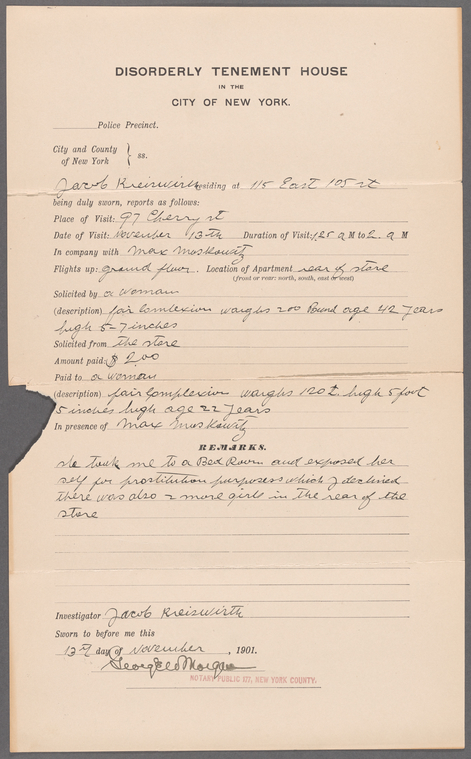 DISORDERLY TENEMENT HOUSE
IN THE
CITY OF NEW YORK.
Police Precinct.
City and County
of New York } ss.
Jacob Kreiswirth residing at 115 East 105 st
being duly sworn, reports as follows:
Place of Visit: 97 Cherry st
Date of Visit: November 13th Duration of Visit: 1.25 a M to 2 a M
In company with Max Moskowitz
Flights up: ground floor. Location of Apartment rear of store
(front or rear: north, south, east or west)
Solicited by a woman
(description) fair Complexion waighs 200 Pound age 42 years
high 5-7 inches
Solicited from the store
Amount paid: $ 2.00
Paid to a woman
(description) fair Complexion waighs 120 high 5 foot
5 inches high age 22 years
In presence of Max Moskowitz
REMARKS.
she took me to a Bed Room and exposed her
self for prostitution purposess which I declined
there was also 2 more girls in the rear of the
store
Investigator Jacob Kreiswirth
Sworn to before me this
13th day of November, 1901.
Morgan
NOTARY PUBLIC 177, NEW YORK COUNTY.